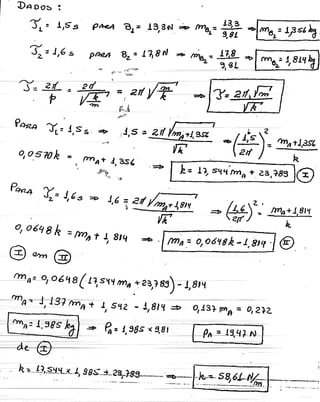 DADOS:
T₁ = 1,5 s PARA B₁ = 13,3 N ⇒ m_B₁ = 13,3/9,81 ⇒ m_B₁ = 1,356 kg
T₂ = 1,6 s PARA B₂ = 17,8 N ⇒ m_B₂ = 17,8/9,81 ⇒ m_B₂ = 1,814 kg
T = 2π/p = 2π/√(k/m) = 2π √(m/k) ⇒ T = 2π √m/√k
PARA T₁ = 1,5 s ⇒ 1,5 = 2π √(m_A + 1,356)/√k ⇒ (1,5/2π)² = (m_A + 1,356)/k
0,0570 k = m_A + 1,356 ⇒ k = 17,544 m_A + 23,789 (I)
PARA T₂ = 1,6 s ⇒ 1,6 = 2π √(m_A + 1,814)/√k ⇒ (1,6/2π)² = (m_A + 1,814)/k
0,0648 k = m_A + 1,814 ⇒ m_A = 0,0648 k - 1,814 (II)
(I) em (II)
m_A = 0,0648 (17,544 m_A + 23,789) - 1,814
m_A = 1,137 m_A + 1,542 - 1,814 ⇒ 0,137 m_A = 0,272
m_A = 1,985 kg ⇒ P_A = 1,985 × 9,81 P_A = 19,47 N
de (I)
k = 17,544 × 1,985 + 23,789 ⇒ k = 58,61 N/m